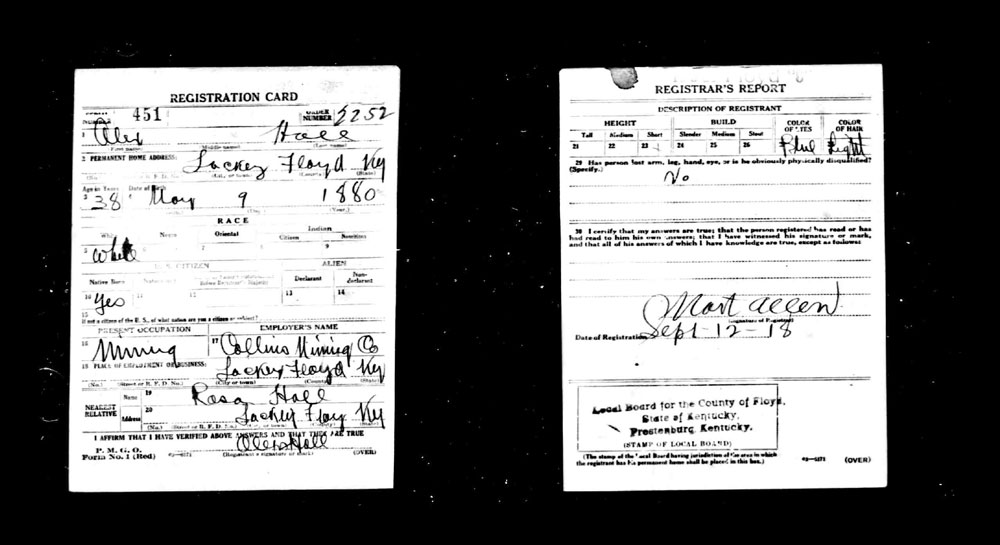 REGISTRATION CARD
SERIAL NUMBER 451 ORDER NUMBER 2252
1 Alex Hall
(First name) (Middle name) (Last name)
2 PERMANENT HOME ADDRESS:
Lackey Floyd Ky
(No.) (City or town) (County) (State)
Age in Years Date of Birth
3 38 4 May 9 1880
(Day.) (Year.)
RACE
White Negro Oriental Indian
Citizen Noncitizen
5 White 6 7 8 9
U. S. CITIZEN ALIEN
Native Born Declarant Non-declarant
10 Yes 11 12 13 14
15
If not a citizen of the U. S., of what nation are you a citizen or subject?
PRESENT OCCUPATION EMPLOYER'S NAME
16 Mining 17 Collins Mining Co
18 PLACE OF EMPLOYMENT OR BUSINESS:
Lackey Floyd Ky
(No.) (Street or R. F. D. No.) (City or town) (County) (State)
NEAREST RELATIVE
Name 19 Rosa Hall
Address 20 Lackey Floy Ky
(No.) (Street or R. F. D. No.) (City or town) (County) (State)
I AFFIRM THAT I HAVE VERIFIED ABOVE ANSWERS AND THAT THEY ARE TRUE
P. M. G. O.
Form No. 1 (Red) Alex Hall
(Registrant's signature or mark) (OVER)
REGISTRAR'S REPORT
DESCRIPTION OF REGISTRANT
HEIGHT BUILD COLOR OF EYES COLOR OF HAIR
Tall Medium Short Slender Medium Stout
21 22 23 24 25 26 Blue Light
29 Has person lost arm, leg, hand, eye, or is he obviously physically disqualified?
(Specify.) No
30 I certify that my answers are true; that the person registered has read or has
had read to him his own answers; that I have witnessed his signature or mark,
and that all of his answers of which I have knowledge are true, except as follows:
Mart Allen
(Signature of Registrar)
Date of Registration Sept-12-18
Local Board for the County of Floyd,
State of Kentucky,
Prestenburg, Kentucky.
(STAMP OF LOCAL BOARD)
(The stamp of the Local Board having jurisdiction of the area in which
the registrant has his permanent home shall be placed in this box.)
03-6171 (OVER)